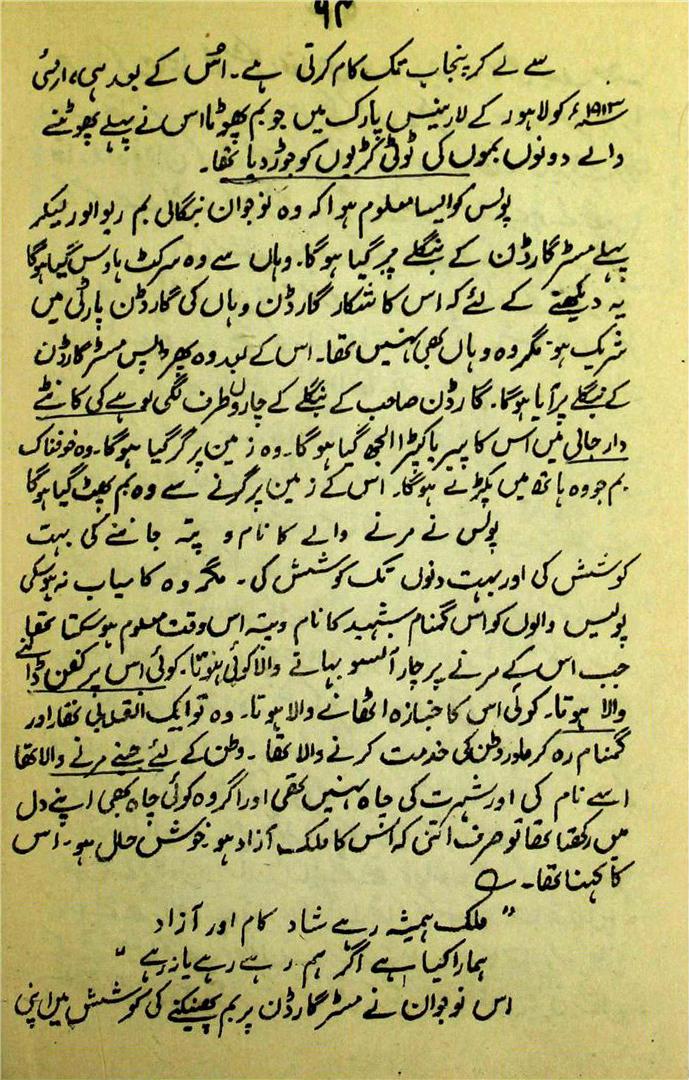 ۶۴
سے لے کر پنجاب تک کام کرتی ہے۔ اُس کے بعد ہی، ارمئی
۱۹۱۳ء کو لاہور کے لارینس پارک میں جو بم پھوٹا اس نے پہلے پھوٹنے
والے دونوں بموں کی ٹوٹی کڑیوں کو جوڑ دیا تھا۔
پولس کو ایسا معلوم ہوا کہ وہ نوجوان بنگالی بم ریوالور لیکر
پہلے مسٹر گارڈن کے بنگلے پر گیا ہوگا۔ وہاں سے وہ سرکٹ ہاوس گیا ہوگا
یہ دیکھنے کے لئے کہ اس کا شکار گارڈن وہاں کی گارڈن پارٹی میں
شریک ہو مگر وہ وہاں بھی نہیں تھا۔ اس کے بعد وہ پھر واپس مسٹر گارڈن
کے بنگلے پر آیا ہوگا۔ گارڈن صاحب کے بنگلے کے چاروں طرف لگی لوہے کی کانٹے
دار جالی میں اس کا پیر یا کپڑا الجھ گیا ہوگا۔ وہ زمین پر گر گیا ہوگا۔ وہ خوفناک
بم جو وہ ہاتھ میں پکڑے ہوگا۔ اس کے زمین پر گرنے سے وہ بم پھٹ گیا ہوگا
پولس نے مرنے والے کا نام و پتہ جاننے کی بہت
کوشش کی اور بہت دنوں تک کوشش کی۔ مگر وہ کامیاب نہ ہوسکی
پولیس والوں کو اس گمنام شہید کا نام و پتہ اس وقت معلوم ہوسکتا تھا
جب اس کے مرنے پر چار آنسو بہانے والا کوئی ہوتا۔ کوئی اس پر کفن ڈالنے
والا ہوتا۔ کوئی اس کا جنازہ اٹھانے والا ہوتا۔ وہ تو ایک انقلابی تھا اور
گمنام رہ کر مادر وطن کی خدمت کرنے والا تھا۔ وطن کے لئے جینے مرنے والا تھا
اسے نام کی اور شہرت کی چاہ نہیں تھی اور اگر وہ کوئی چاہ بھی اپنے دل
میں رکھتا تھا تو صرف اتنی کہ اُس کا ملک آزاد ہو خوش حال ہو۔ اس
کا کہنا تھا۔
"ملک ہمیشہ رہے شاد کام اور آزاد
ہمارا کیا ہے اگر ہم رہے رہے یا نہ رہے"
اس نوجوان نے مسٹر گارڈن پر بم پھینکنے کی کوشش میں اپنی